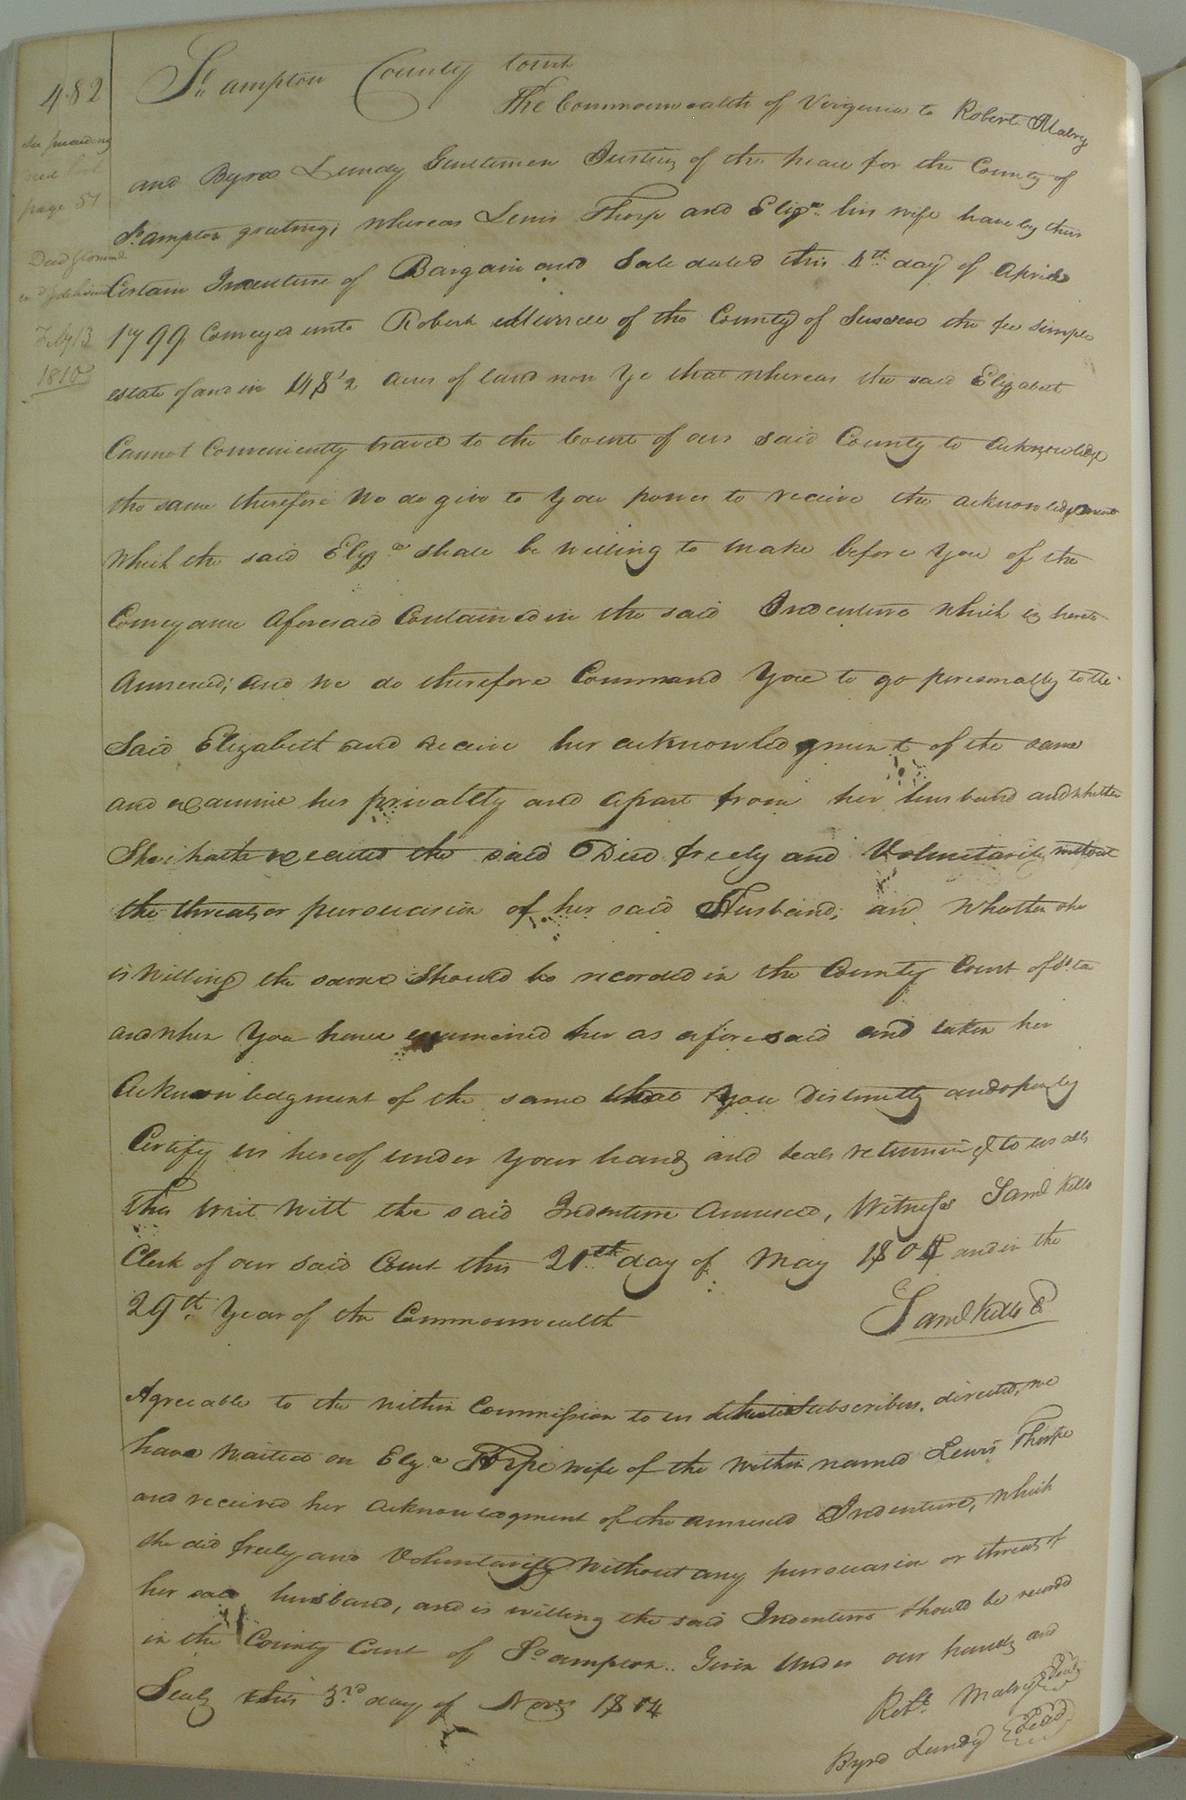 482
See preceeding
page 57
Deed
Feby 13
1810
So. ampton County Court
The Commonwealth of Virginia to Robert Mabry
and Byrd Lundy Gentlemen Justices of the peace for the County of
So. ampton greeting; whereas Lewis Thorp and Eliza. his wife have by their
Certain Indenture of Bargain and Sale dated this 4th day of April
1799 Conveyed unto Robert Murrell of the County of Sussex the fee simple
estate of and in 148 1/2 acres of land now Ye that whereas the said Elizabeth
Cannot Conveniently travel to the Court of our said County to acknowledge
the same therefore We do give to You power to receive the acknowledgement
Which the said Eliza shall be willing to make before You of the
Conveyance Aforesaid Contained in the said Indenture Which is hereto
Annexed; and We do therefore Command You to go personally to the
Said Elizabeth and receive her acknowledgment of the same
and examine her privately and apart from her husband and whether
She hath executed the said Deed freely and Voluntarily without
the threats or persuasion of her said Husband; and Whether she
is Willing the same Should be recorded in the County Court of
and when You have examined her as aforesaid and taken her
Acknowledgment of the same that You Distinctly and openly
Certify us hereof under your hands and seals returning to us also
This Writ With the said Indenture Annexed, Witness Saml Kello
Clerk of our said Court this 21st day of May 1804 and in the
29th Year of the Commonwealth
Saml Kello C
Agreeable to the within Commission to us the Subscribers, directed, we
have Waited on Eliza Thorpe wife of the within named Lewis Thorpe
and received her acknowledgment of the annexed Indenture, Which
she did freely and Voluntarily Without any persuasion or threats of
her said husband, and is willing the said Indenture should be recorded
in the County Court of So ampton. Given Under our hands and
Seals this 3rd day of Novr 1804
Robt. Mabry Seal
Byrd Lundy Seal